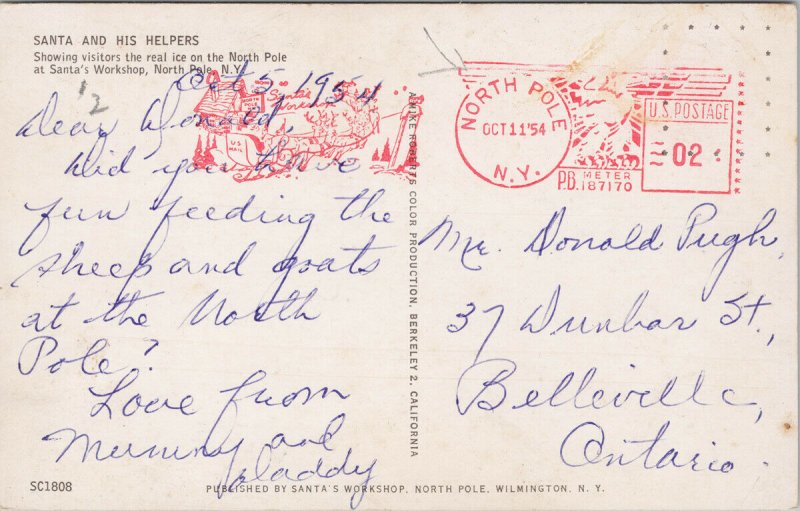 SANTA AND HIS HELPERS
Showing visitors the real ice on the North Pole
at Santa's Workshop, North Pole, N.Y.
12
Oct 5, 1954
Dear Donald,
Did you have
fun feeding the
sheep and goats
at the North
Pole?
Love from
Mummy and
Daddy
SC1808
U.S.
MAIL
A MIKE ROBERTS COLOR PRODUCTION, BERKELEY 2, CALIFORNIA
NORTH POLE
OCT 11 '54
N.Y.
U.S. POSTAGE
02
P.B. METER
187170
Mr. Donald Pugh,
37 Dunbar St.,
Belleville,
Ontario.
PUBLISHED BY SANTA'S WORKSHOP, NORTH POLE, WILMINGTON, N. Y.